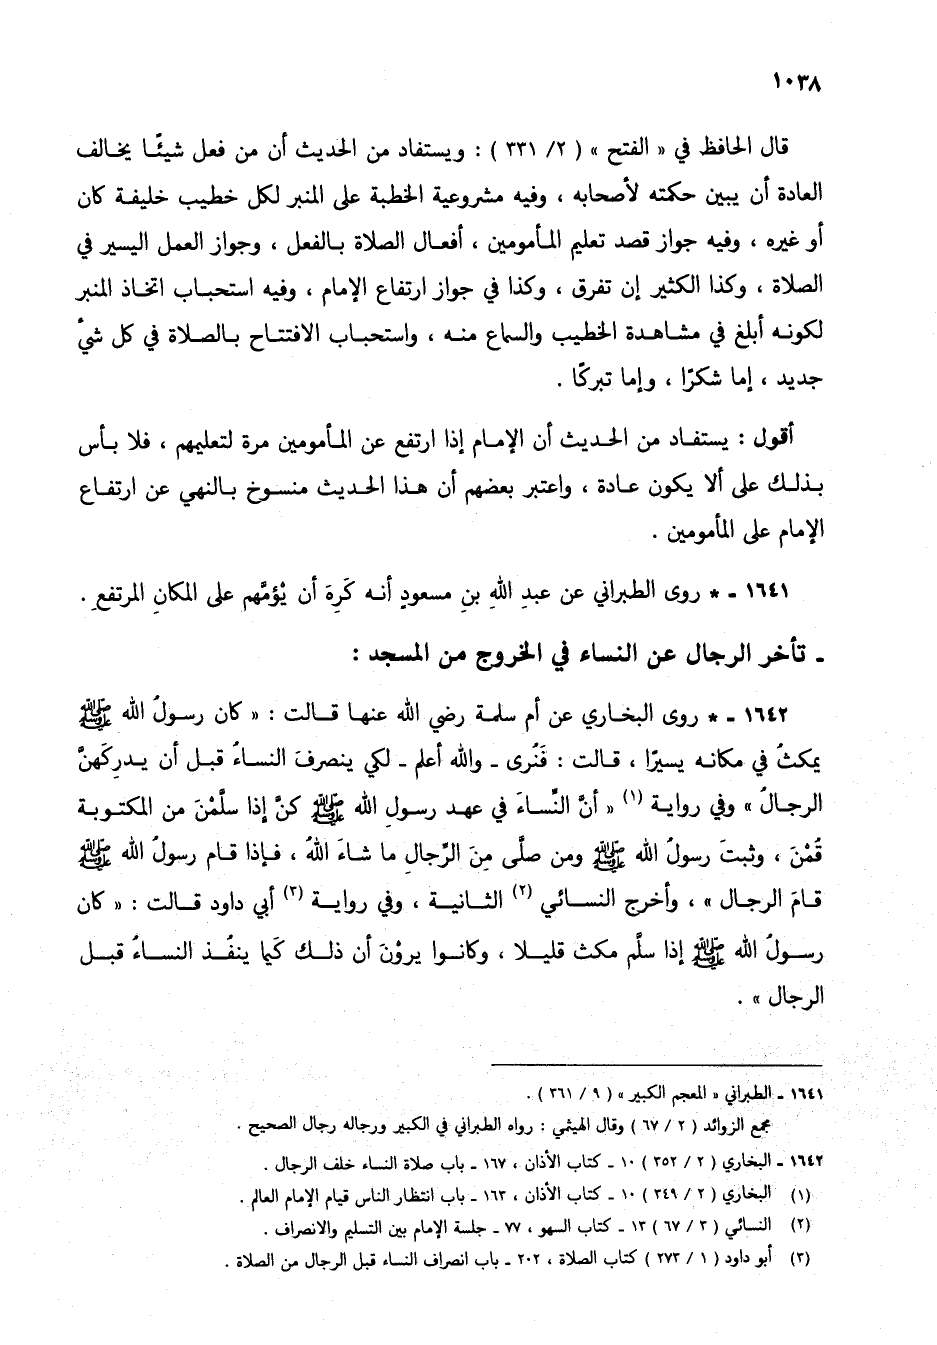 ١٠٣٨
قال الحافظ في « الفتح » ( ٢/ ٣٣١ ) : ويستفاد من الحديث أن من فعل شيئًا يخالف
العادة أن يبين حكمته لأصحابه ، وفيه مشروعية الخطبة على المنبر لكل خطيب خليفة كان
أو غيره ، وفيه جواز قصد تعليم المأمومين ، أفعال الصلاة بالفعل ، وجواز العمل اليسير في
الصلاة ، وكذا الكثير إن تفرق ، وكذا في جواز ارتفاع الإمام ، وفيه استحباب اتخاذ المنبر
لكونه أبلغ في مشاهدة الخطيب والسماع منه ، واستحباب الافتتاح بالصلاة في كل شيء
جديد ، إما شكرًا ، وإما تبركًا .
أقول : يستفاد من الحديث أن الإمام إذا ارتفع عن المأمومين مرة لتعليمهم ، فلا بأس
بذلك على ألا يكون عادة ، واعتبر بعضهم أن هذا الحديث منسوخ بالنهي عن ارتفاع
الإمام على المأمومين .
١٦٤١ - * روى الطبراني عن عبدِ اللهِ بنِ مسعودٍ أنه كَرِهَ أن يُؤمَّهم على المكانِ المرتفعِ .
ـ تأخر الرجال عن النساء في الخروج من المسجد :
١٦٤٢ - * روى البخاري عن أم سلمة رضي الله عنها قالت : « كان رسولُ الله ﷺ
يمكثُ في مكانه يسيرًا ، قالت : فَنُرى ـ والله أعلم ـ لكي ينصرفَ النساءُ قبل أن يدركَهنَّ
الرجالُ » وفي رواية (١) « أنَّ النِّساءَ في عهد رسولِ الله ﷺ كنَّ إذا سلَّمْنَ من المكتوبة
قُمْنَ ، وثبتَ رسولُ الله ﷺ ومن صلَّى مِنَ الرِّجالِ ما شاءَ اللهُ ، فإذا قام رسولُ الله ﷺ
قامَ الرجال » ، وأخرج النسائي (٢) الثانية ، وفي رواية (٣) أبي داود قالت : « كان
رسولُ الله ﷺ إذا سلَّم مكث قليلا ، وكانوا يروْنَ أن ذلك كَيما ينفُذ النساءُ قبل
الرجال » .
١٦٤١ ـ الطبراني « المعجم الكبير » ( ٩ / ٣٦١ ) .
مجمع الزوائد ( ٢ / ٦٧ ) وقال الهيثمي : رواه الطبراني في الكبير ورجاله رجال الصحيح .
١٦٤٢ ـ البخاري ( ٢ / ٣٥٢ ) ١٠ ـ كتاب الأذان ، ١٦٧ ـ باب صلاة النساء خلف الرجال .
(١) البخاري ( ٢ / ٣٤٩ ) ١٠ ـ كتاب الأذان ، ١٦٣ ـ باب انتظار الناس قيام الإمام العالم .
(٢) النسائي ( ٣ / ٦٧ ) ١٣ ـ كتاب السهو ، ٧٧ ـ جلسة الإمام بين التسليم والانصراف .
(٣) أبو داود ( ١ / ٢٧٣ ) كتاب الصلاة ، ٢٠٢ ـ باب انصراف النساء قبل الرجال من الصلاة .